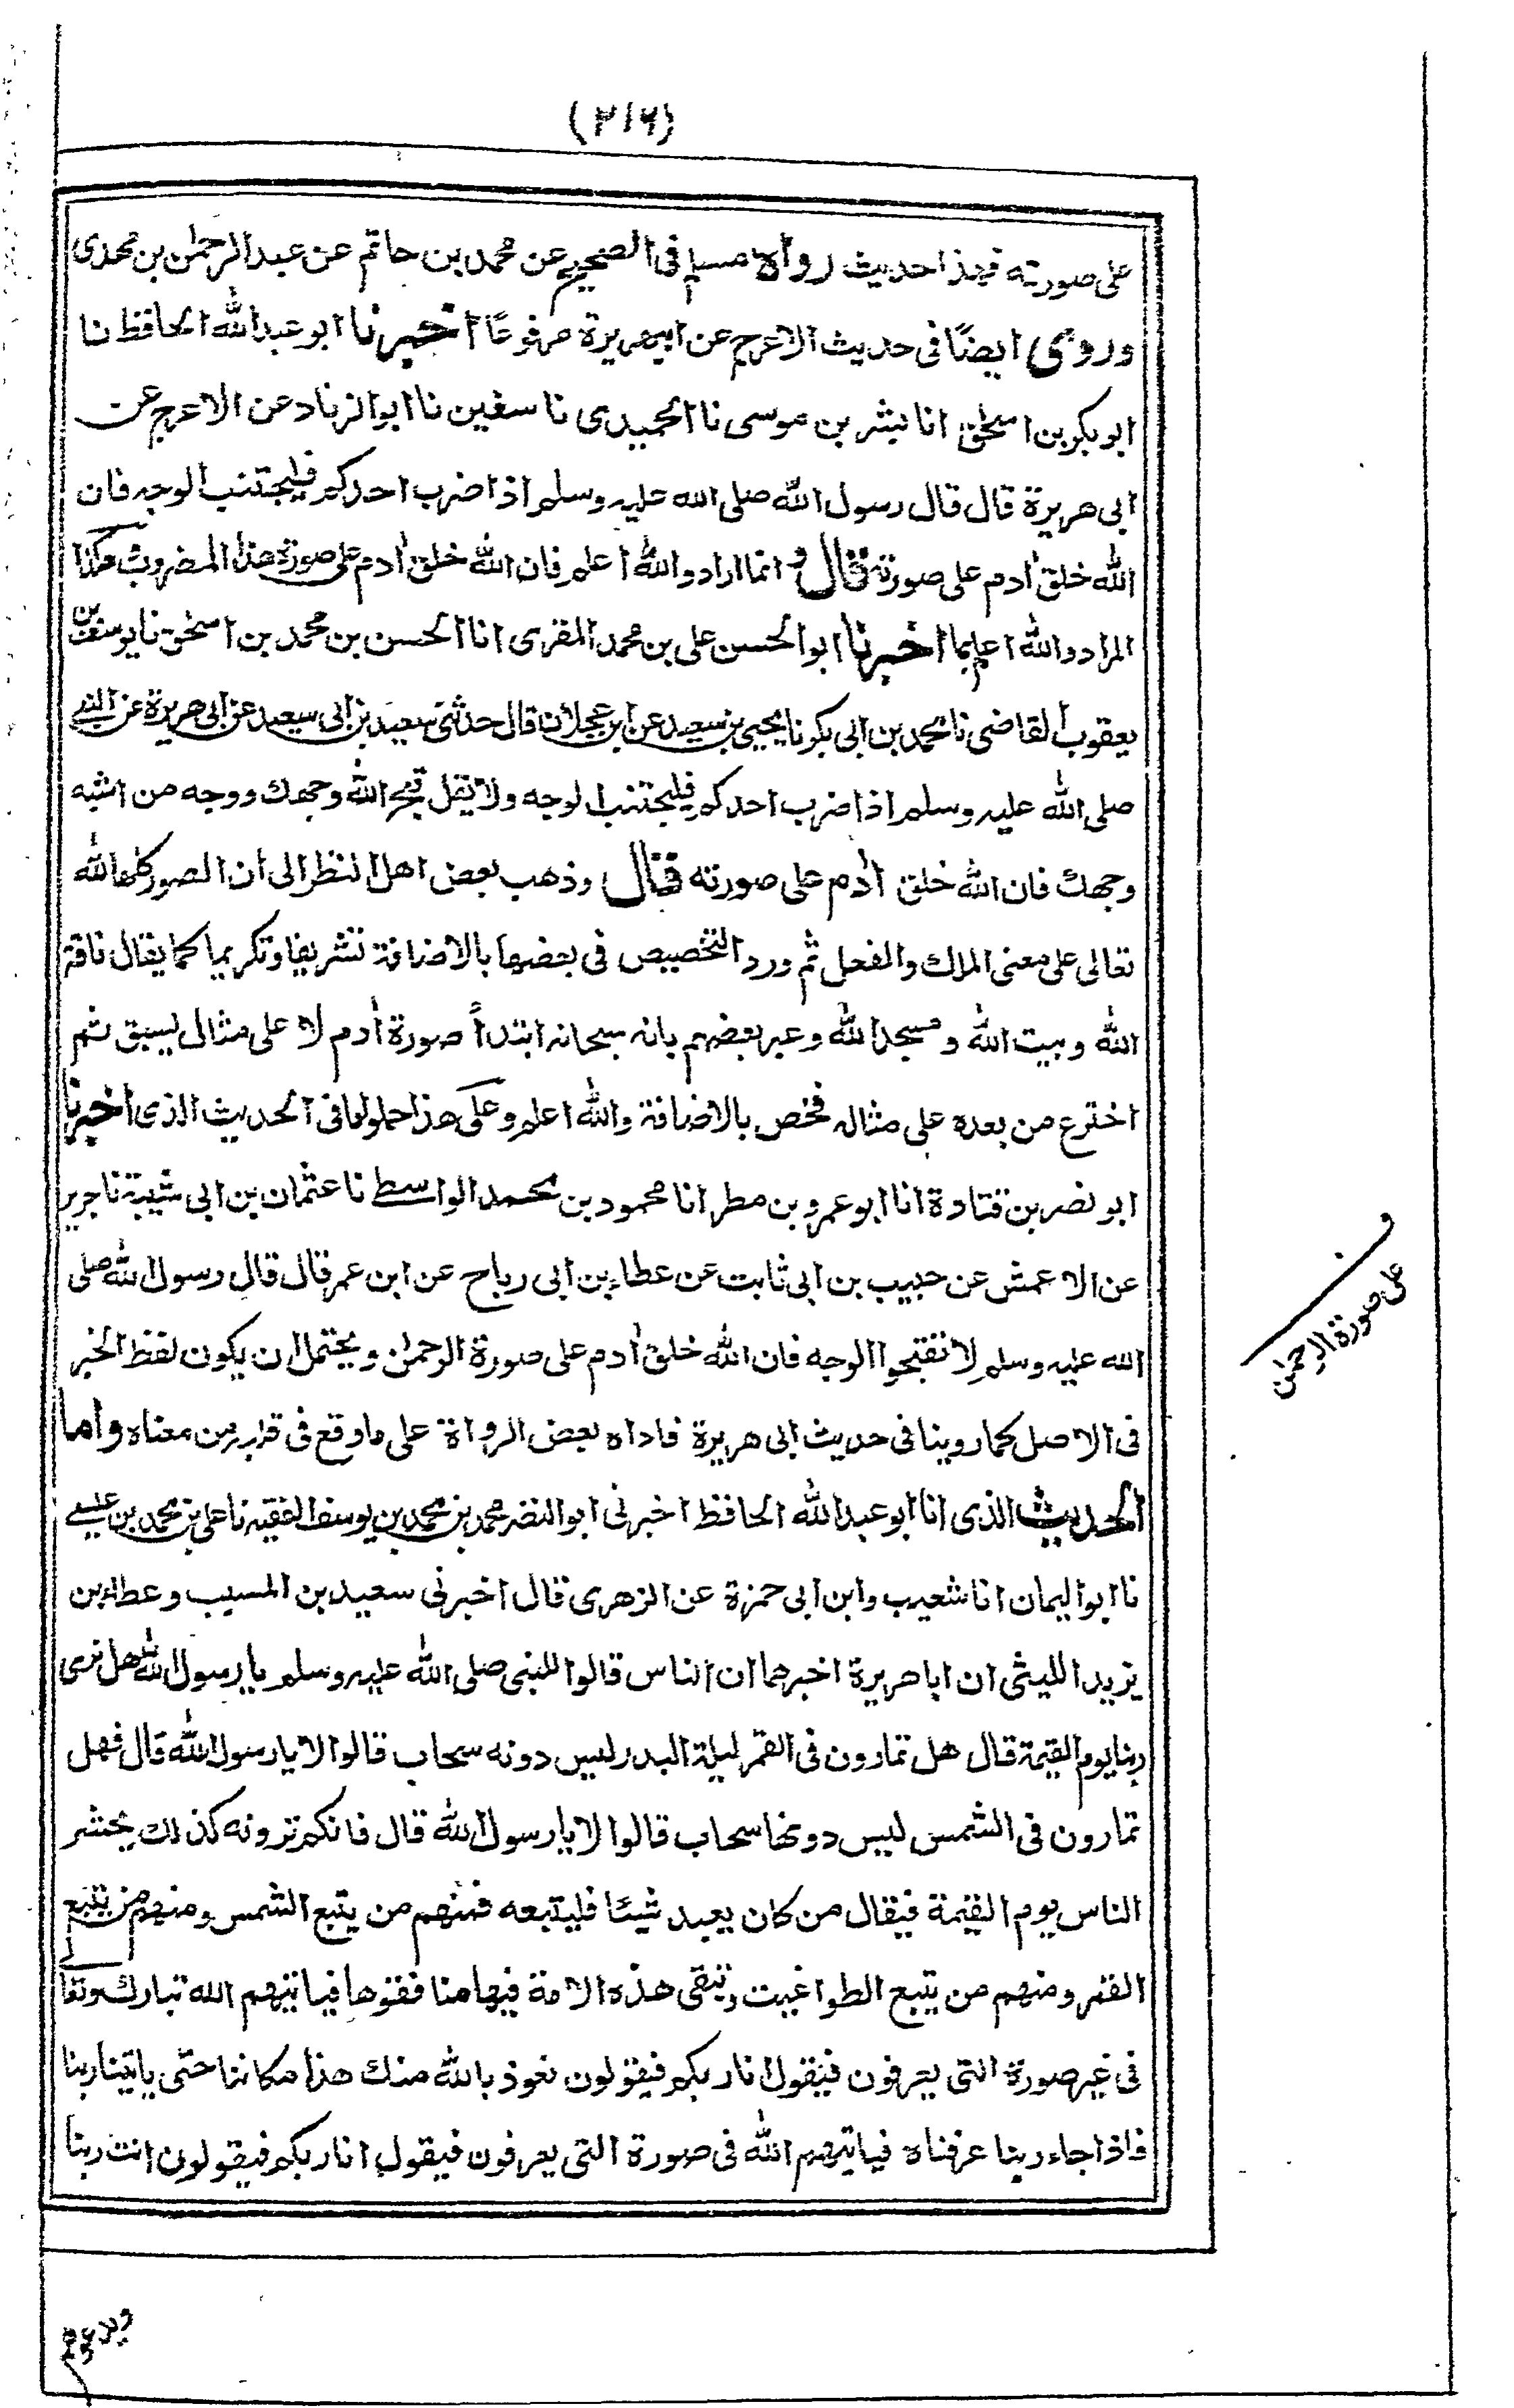 (٢١٦)
على صورته فهذا حديث رواه مسلم فى الصحيح عن محمد بن حاتم عن عبد الرحمٰن بن مهدى
وروى ايضًا فى حديث الاعرج عن ابيهريرة مرفوعًا اخبرنا ابو عبد الله الحافظ نا
ابو بكر بن اسحٰق انا بشر بن موسى نا الحميدى نا سفين نا ابو الزناد عن الاعرج عن
ابى هريرة قال قال رسول الله صلى الله عليه وسلم اذا ضرب احدكم فليجتنب الوجه فان
الله خلق اٰدم على صورته قال وانما اراد والله اعلم فان الله خلق اٰدم على صورة هذا المضروب هكذا
المراد والله اعلم بما اخبرنا ابو الحسن على بن محمد المقرى انا الحسن بن محمد بن اسحٰق نا يوسف بن
يعقوب القاضى نا محمد بن ابى بكر نا يحيى بن سعيد عن ابن عجلان قال حدثنى سعيد بن ابى سعيد عن ابى هريرة عن النبى
صلى الله عليه وسلم اذا ضرب احدكم فليجتنب الوجه ولا يقل قبح الله وجهك ووجه من اشبه
وجهك فان الله خلق اٰدم على صورته قال وذهب بعض اهل النظر الى ان الصور كلها لله
تعالى على معنى الملك والفعل ثم ورد التخصيص فى بعضها بالاضافة تشريفا وتكريما كما يقال ناقة
الله وبيت الله ومسجد الله وعبر بعضهم بانه سبحانه ابتدأ صورة اٰدم لا على مثال ليسبق ثم
اخترع من بعده على مثاله فخص بالاضافة والله اعلم وعلى هذا حملوا ما فى الحديث الذى اخبرنا
ابو نصر بن قتادة انا ابو عمرو بن مطر انا محمود بن محمد الواسطے نا عثمان بن ابى شيبة نا جرير
عن الاعمش عن حبيب بن ابى ثابت عن عطاء بن ابى رباح عن ابن عمر قال قال رسول الله صلى
الله عليه وسلم لا تقبحوا الوجه فان الله خلق اٰدم على صورة الرحمٰن ويحتمل ان يكون لفظ الخبر
فى الاصل كما روينا فى حديث ابى هريرة فاداه بعض الرواة على ما وقع فى قلبه من معناه واما
الحديث الذى انا ابو عبد الله الحافظ اخبرنى ابو النضر محمد بن محمد بن يوسف الفقيه نا على بن محمد بن عيسے
نا ابو اليمان انا شعيب وابن ابى حمزة عن الزهرى قال اخبرنى سعيد بن المسيب وعطاء بن
يزيد الليثى ان ابا هريرة اخبرهما ان الناس قالوا للنبى صلى الله عليه وسلم يا رسول الله هل نرى
ربنا يوم القيٰمة قال هل تمارون فى القمر ليلة البدر ليس دونه سحاب قالوا لا يا رسول الله قال فهل
تمارون فى الشمس ليس دونها سحاب قالوا لا يا رسول الله قال فانكم ترونه كذلك يحشر
الناس يوم القيٰمة فيقال من كان يعبد شيئا فليتبعه فمنهم من يتبع الشمس ومنهم من يتبع
القمر ومنهم من يتبع الطواغيت وتبقى هذه الامة فيها منافقوها فياتيهم الله تبارك وتعالے
فى غير صورة التى يعرفون فيقول انا ربكم فيقولون نعوذ بالله منك هذا مكاننا حتى ياتينا ربنا
فاذا جاء ربنا عرفناه فياتيهم الله فى صورة التى يعرفون فيقول انا ربكم فيقولون انت ربنا
على صورة الرحمٰن